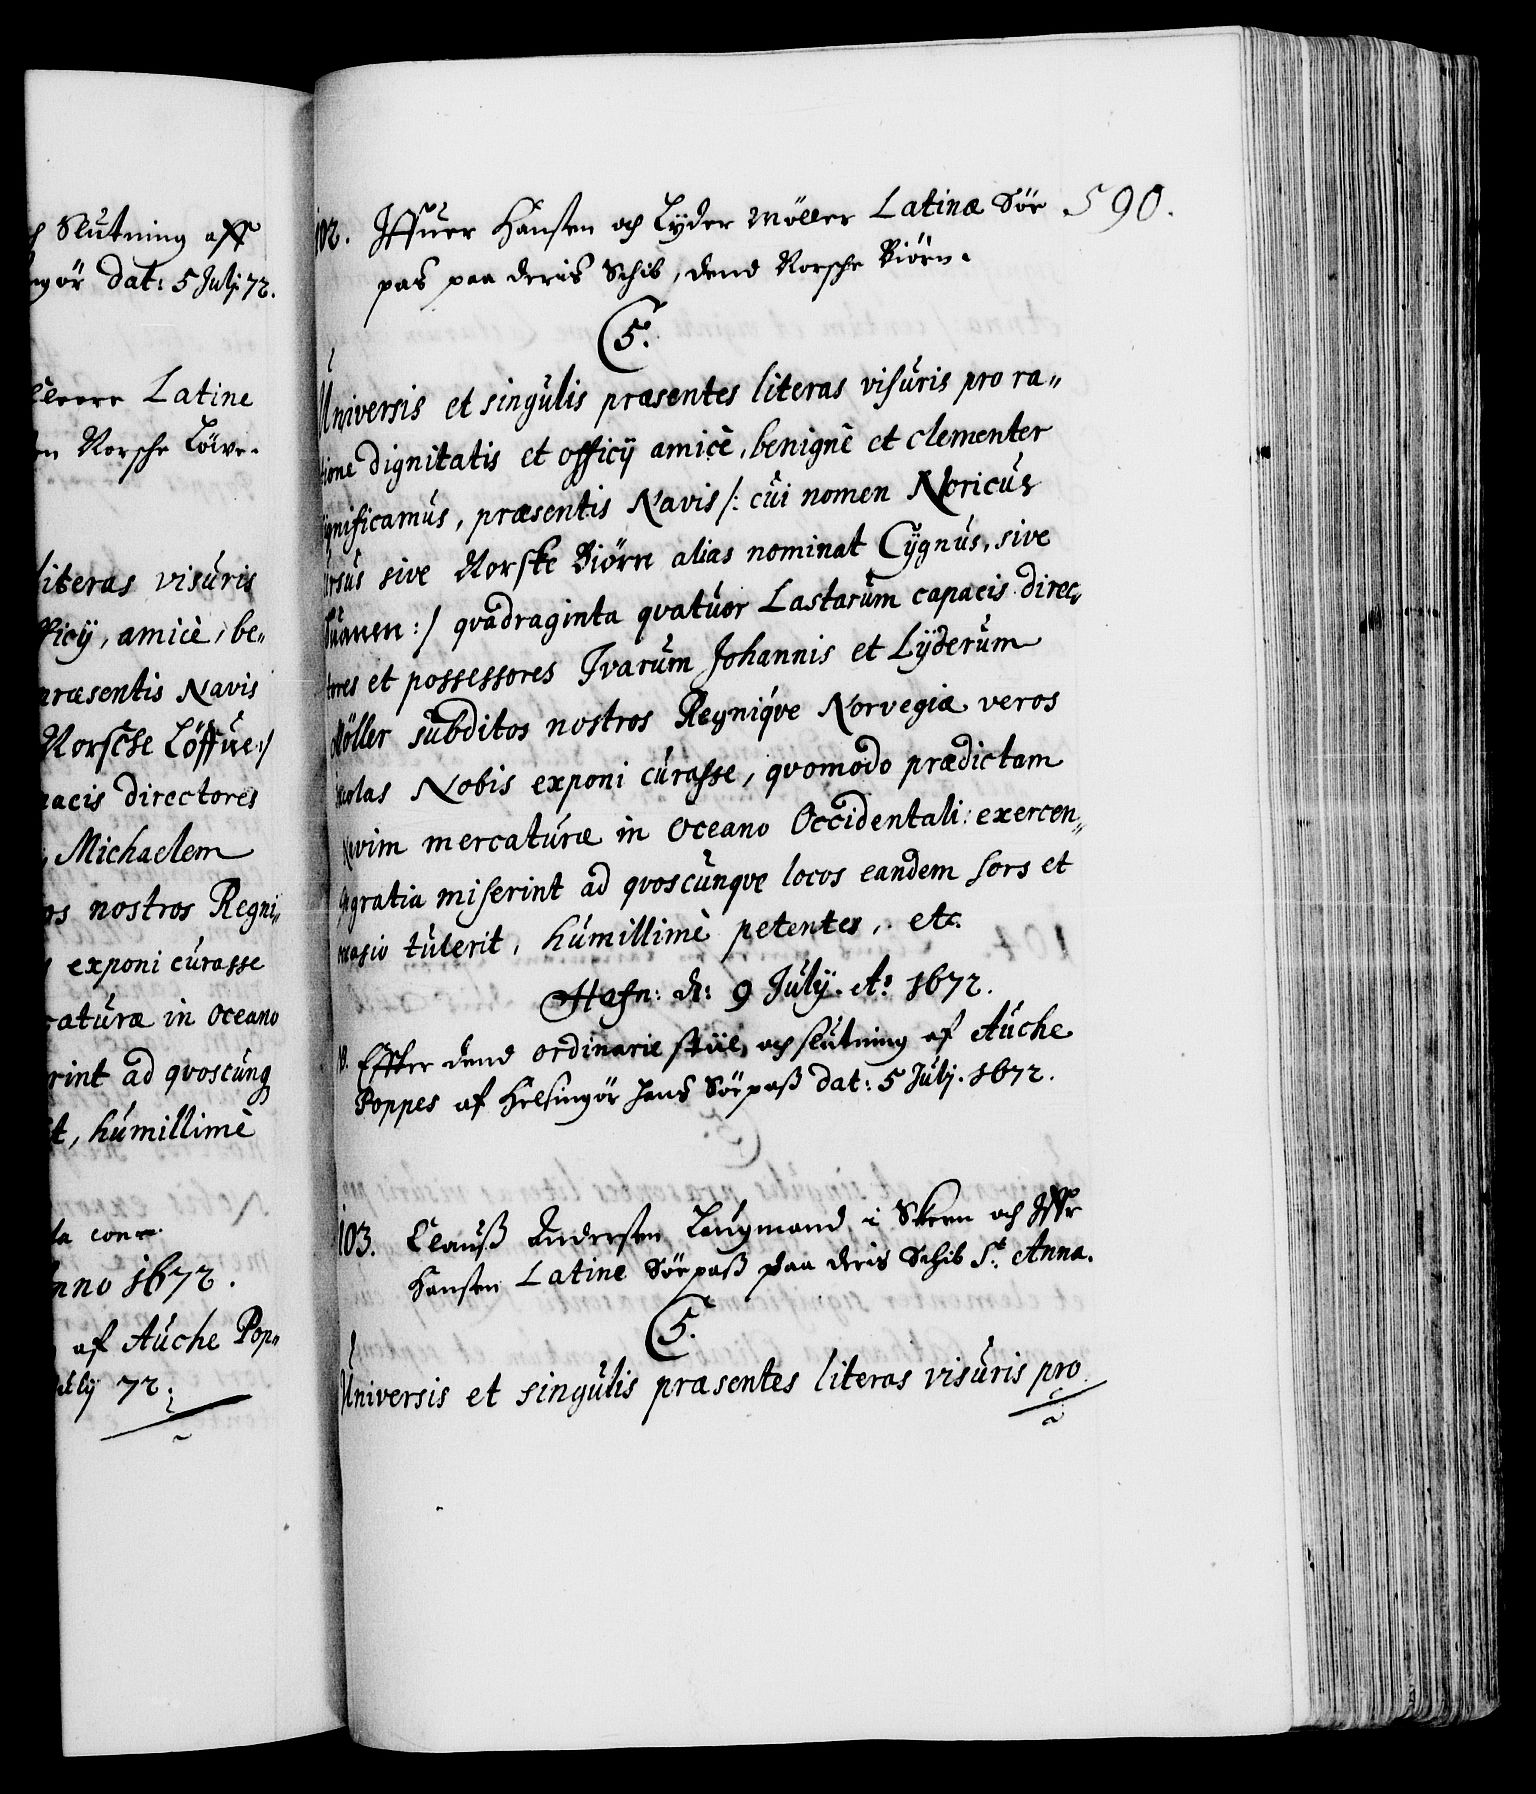 h Slutning aff
ngör dat: 5 Julj 72.
Latine
en Norsche Löwe.
literas visuris
fficÿ, amicè, be„
præsentis Navis
Norsche Löffue:/
pacis directores
, Michaelem
os nostros Regni„
exponi curasse
caturæ in Oceano
rint ad qvoscunq
t, humillimè
nno 1672.
af Auche Pop„
Julÿ 72.
590.
102. Iffuer Hansen och Lyder Möller Latinæ Söe
pas paa deris Schib, dend Norsche Biörn.
C5.
Universis et singulis præsentes literas visuris pro ra„
tione dignitatis et officÿ amicè, benignè et clementer
significamus, præsentis Navis /: cui nomen Noricus
Ursus sive Norske Biörn alias nominat Cÿgnus, sive
Suanen :/ qvadraginta qvatuor Lastarum capacis direc„
tores et possessores Ivarum Johannis et Lÿderum
Möller subditos nostros Regniqve Norvegiæ veros
incolas Nobis exponi curasse, qvomodo prædictam
Navim mercaturæ in Oceano Occidentali exercen„
gratia miserint ad qvoscunqve locos eandem sors et
occasio tulerit, humillimè petentes, etc.
Hafn: d: 9 Julÿ. Aº 1672.
Effter dend ordinarie stiil och slutning af Auche
Poppes af Helsingör hans Söepaß dat: 5 Julj. 1672.
103. Clauß Andersen Laugmand i Skeen och Iffr
Hansen Latine Söepaß paa deris Schib St. Anna.
C5.
Universis et singulis præsentes literas visuris pro